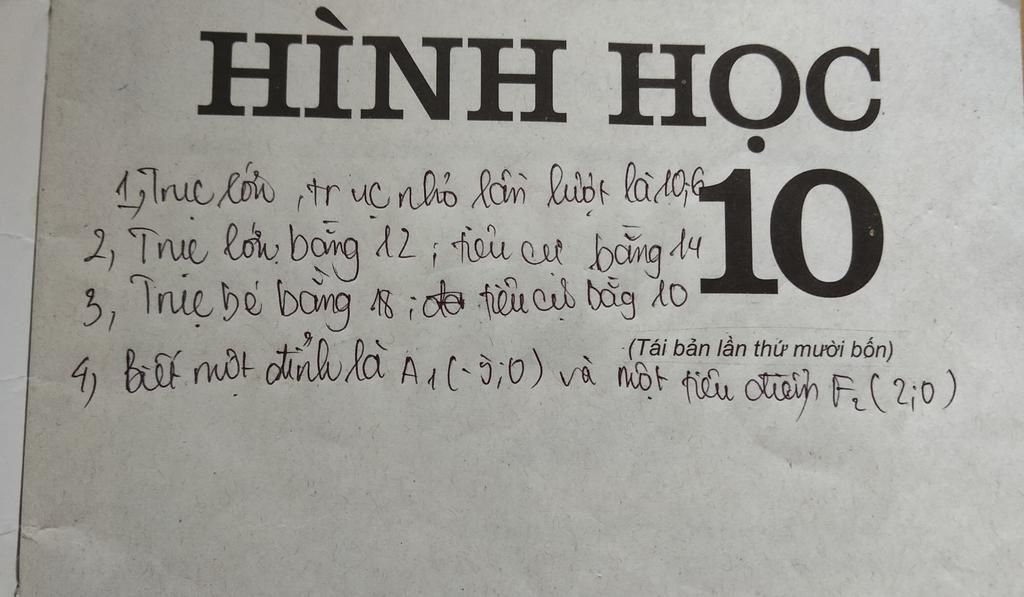 HÌNH HỌC
10
1, Trục lớn, trục nhỏ lần lượt là 10; 6
2, Trục lớn bằng 12; tiêu cự bằng 14
3, Trục bé bằng 18; tiêu cự bằg 10
(Tái bản lần thứ mười bốn)
4, Biết một đỉnh là A₁(-5;0) và một tiêu điểm F₂(2;0)